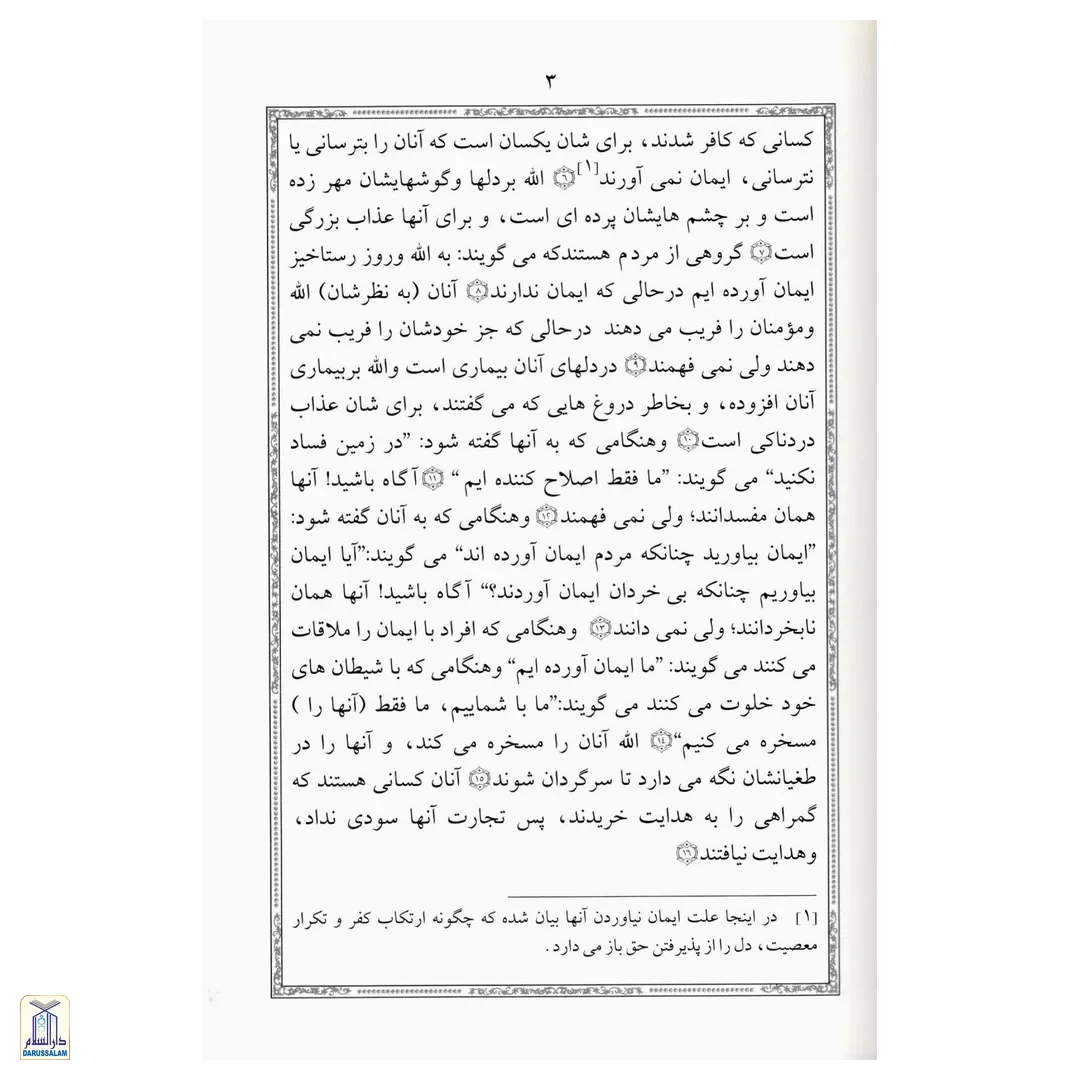 ۳
کسانی که کافر شدند، برای شان یکسان است که آنان را بترسانی یا
نترسانی، ایمان نمی آورند[۱]﴿٦﴾ الله بردلها وگوشهایشان مهر زده
است و بر چشم هایشان پرده ای است، و برای آنها عذاب بزرگی
است﴿٧﴾ گروهی از مردم هستندکه می گویند: به الله وروز رستاخیز
ایمان آورده ایم درحالی که ایمان ندارند﴿٨﴾ آنان (به نظرشان) الله
ومؤمنان را فریب می دهند درحالی که جز خودشان را فریب نمی
دهند ولی نمی فهمند﴿٩﴾ دردلهای آنان بیماری است والله بربیماری
آنان افزوده، و بخاطر دروغ هایی که می گفتند، برای شان عذاب
دردناکی است﴿١٠﴾ وهنگامی که به آنها گفته شود: ”در زمین فساد
نکنید“ می گویند: ”ما فقط اصلاح کننده ایم“ ﴿١١﴾ آگاه باشید! آنها
همان مفسدانند؛ ولی نمی فهمند﴿١٢﴾ وهنگامی که به آنان گفته شود:
”ایمان بیاورید چنانکه مردم ایمان آورده اند“ می گویند:”آیا ایمان
بیاوریم چنانکه بی خردان ایمان آوردند؟“ آگاه باشید! آنها همان
نابخردانند؛ ولی نمی دانند﴿١٣﴾ وهنگامی که افراد با ایمان را ملاقات
می کنند می گویند: ”ما ایمان آورده ایم“ وهنگامی که با شیطان های
خود خلوت می کنند می گویند:”ما با شماییم، ما فقط (آنها را )
مسخره می کنیم“﴿١٤﴾ الله آنان را مسخره می کند، و آنها را در
طغیانشان نگه می دارد تا سرگردان شوند﴿١٥﴾ آنان کسانی هستند که
گمراهی را به هدایت خریدند، پس تجارت آنها سودی نداد،
وهدایت نیافتند﴿١٦﴾
[۱] در اینجا علت ایمان نیاوردن آنها بیان شده که چگونه ارتکاب کفر و تکرار
معصیت، دل را از پذیرفتن حق باز می دارد.
دارالسلام
DARUSSALAM